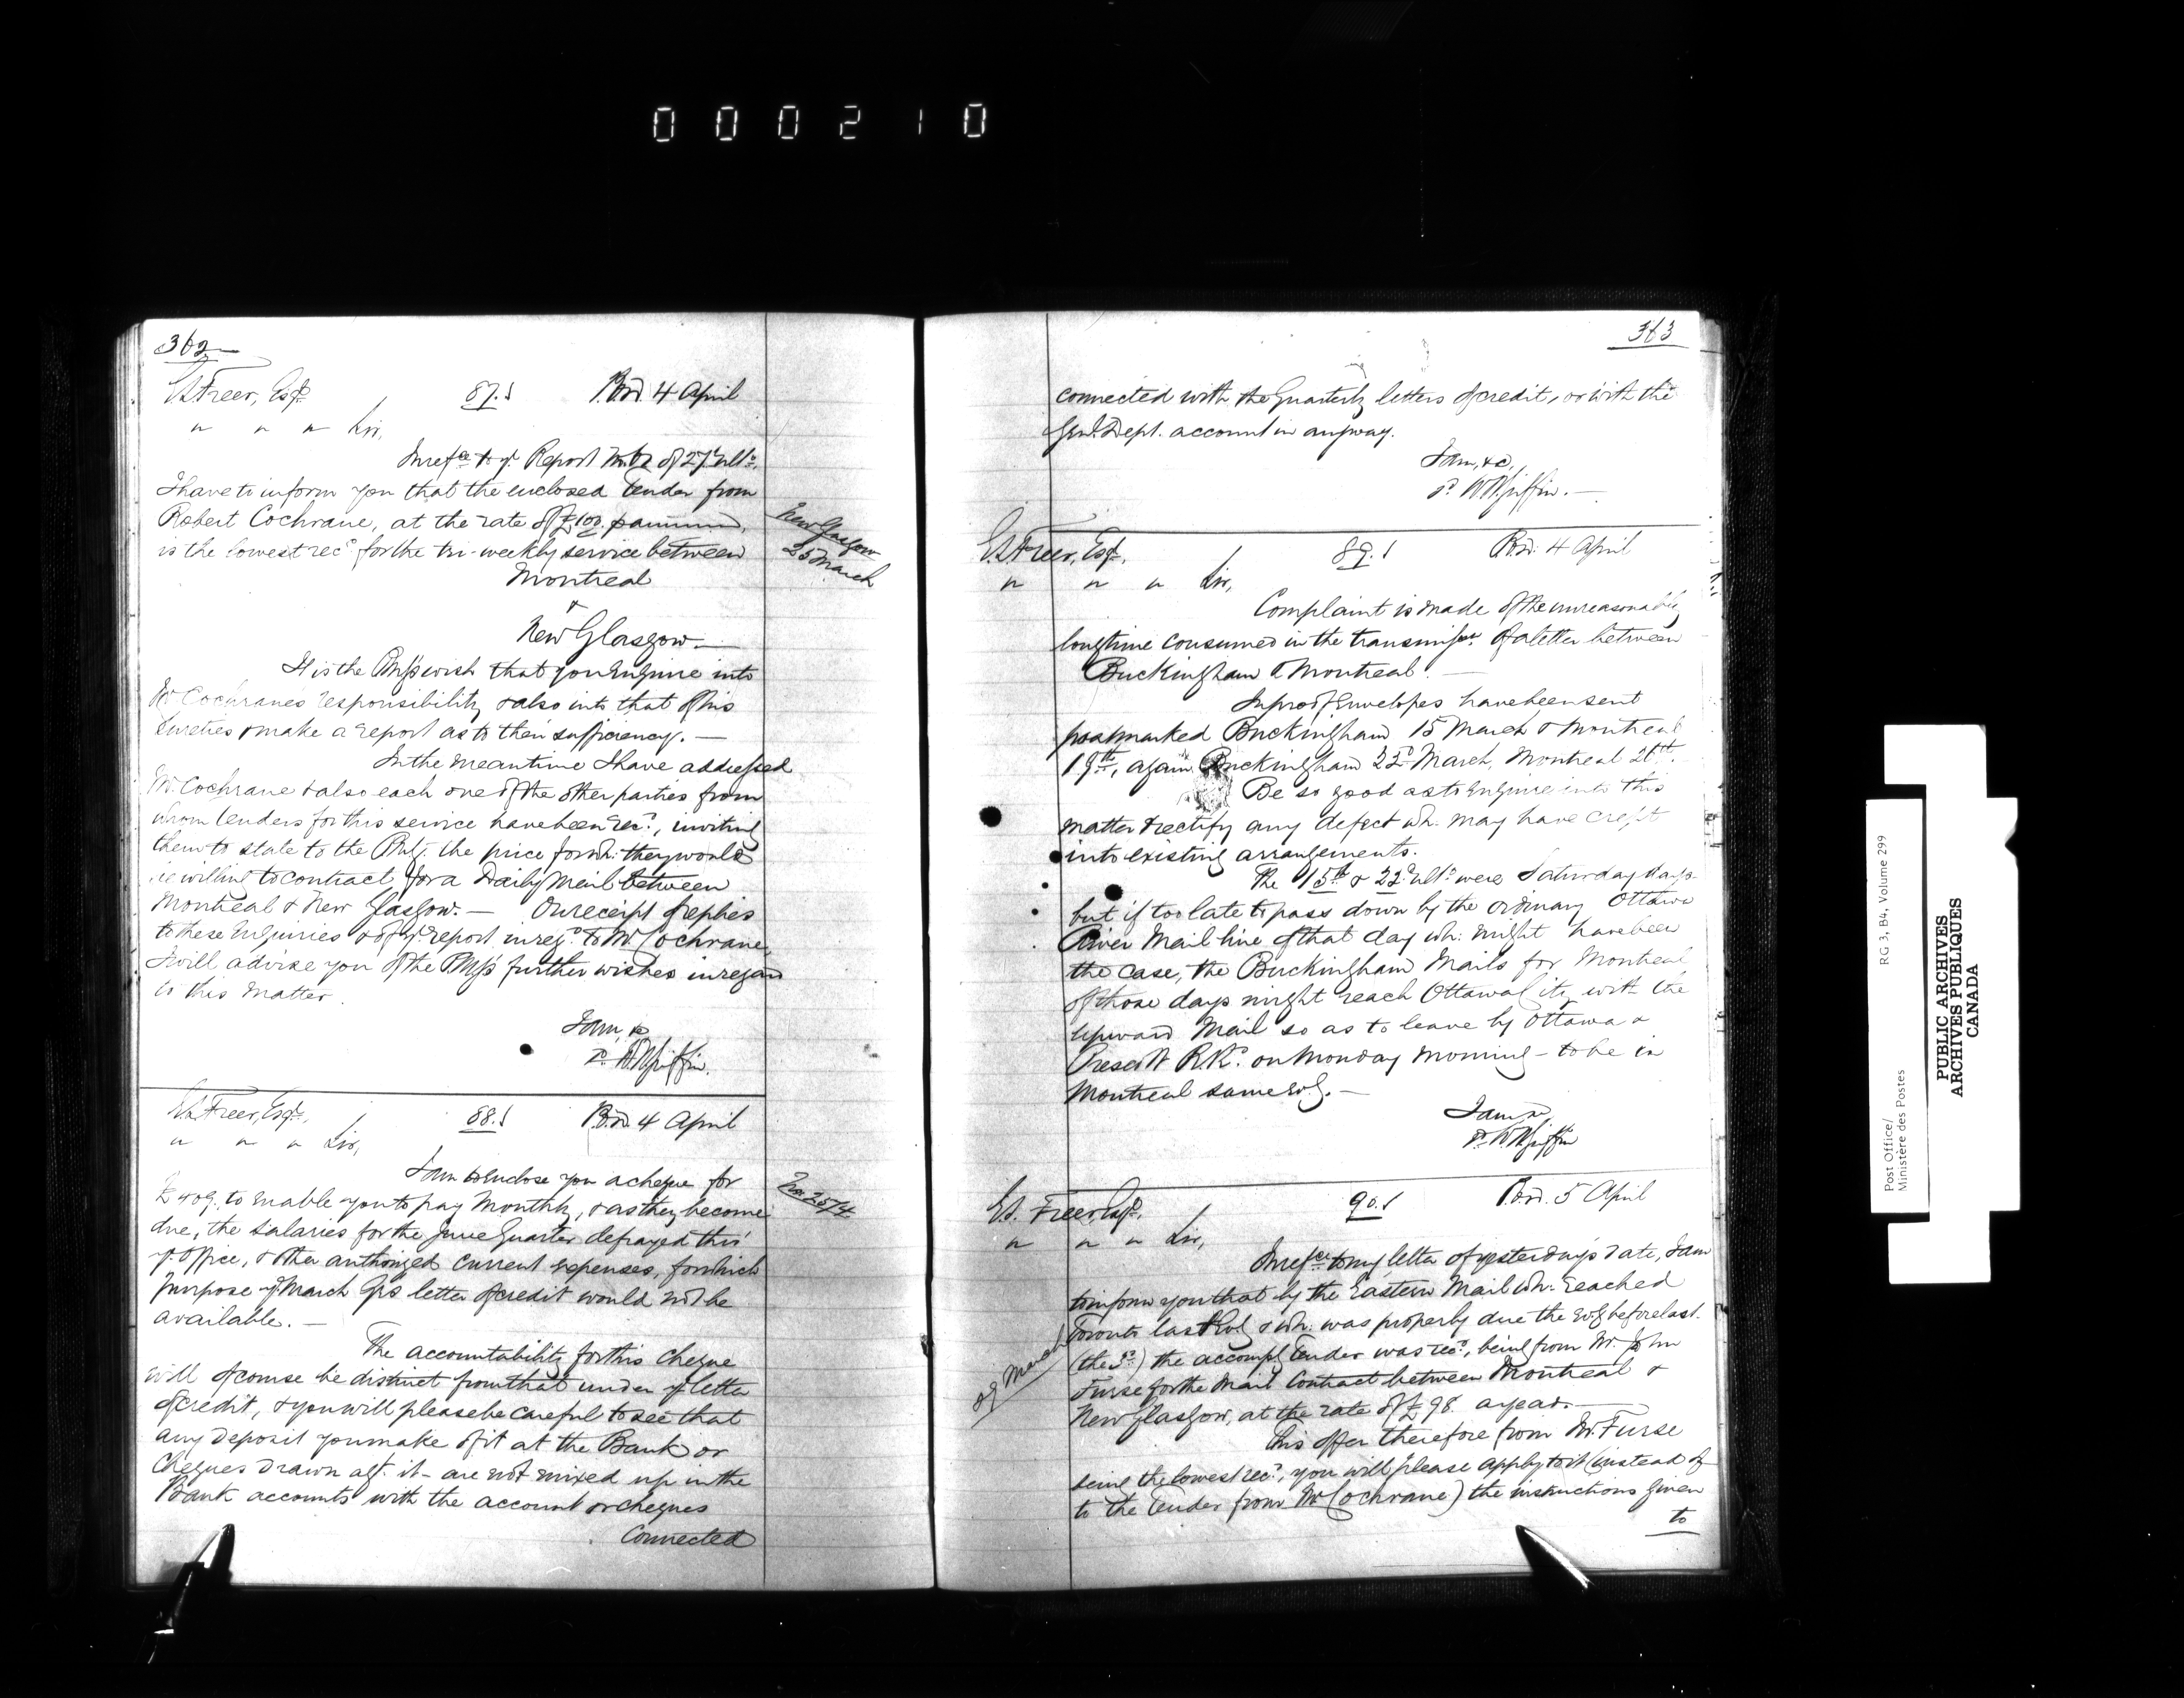 000210
362
E.S. Freer, Esqr. 87.S P.O.D. 4 April
" " " Sir,
In refce to yr. Report of 27 ulto.
I have to inform you that the enclosed tender from
Robert Cochrane, at the rate of £100. p annum,
is the lowest recd. for the tri-weekly service between
Montreal
&
New Glasgow.—
New Glasgow
25 March
It is the PMG's wish that you enquire into
Mr Cochranes responsibility & also into that of his
sureties & make a report as to their sufficiency.—
In the meantime I have addressed
Mr. Cochrane & also each one of the other parties from
whom tenders for this service have been recd., inviting
them to state to the PMG. the price for wh. they would
be willing to contract for a Daily Mail between
Montreal & New Glasgow.— On receipt of replies
to these Enquiries & of yr. report in regd. to Mr Cochrane
I will advise you of the PMG's further wishes in regard
to this matter.
I am, &c
W.H. Griffin.
E.S. Freer, Esqr., 88.S P.O.D. 4 April
" " " Sir,
I am to enclose you a cheque for
£409. to enable you to pay Monthly, & as they become
due, the salaries for the June Quarter defrayed thro'
yr. Office, & other authorized current expenses, for which
purpose yr March Qrs letter of credit would not be
available.—
The accountability for this Cheque
will of course be distinct from that under yr letter
of credit, & you will please be careful to see that
any deposit you make of it at the Bank or
Cheques drawn agt. it – are not mixed up in the
Bank accounts with the account or cheques
Connected
363
connected with the Quarterly letters of credit, or with the
Genl. Dept. account in any way.
I am, &c,
W.H. Griffin.—
E.S. Freer, Esqr., 89.S P.O.D. 4 April
" " " Sir,
Complaint is made of the unreasonably
long time consumed in the transmissn. of a letter between
Buckingham & Montreal.—
In proof Envelopes have been sent
postmarked Buckingham 15 March & Montreal
19th, again Buckingham 22d March, Montreal 26th.
Be so good as to enquire into this
matter & rectify any defect wh. may have crept
into existing arrangements.
The 15th & 22d ulto. were Saturdays
but if too late to pass down by the ordinary Ottawa
River Mail line of that day wh. might have been
the case, the Buckingham Mails for Montreal
of those days might reach Ottawa City with the
upward Mail so as to leave by Ottawa &
Prescott R.Rd. on Monday Morning – to be in
Montreal same evg.—
I am &c,
W.H. Griffin
E.S. Freer, Esqr., 90.S P.O.D. 5 April
" " " Sir,
In refce to my letter of yesterday's date, I am
to inform you that by the Eastern Mail wh. reached
Toronto last Evg & wh. was properly due the evg before last.
(the 3d.) the accompg Tender was recd., being from Mr. John
Furse for the Mail Contract between Montreal &
New Glasgow, at the rate of £98. a year.—
29 March
This offer therefore from Mr. Furse
being the lowest recd., you will please apply to it (instead of
to the Tender from Mr Cochrane) the instructions given
to
Post Office/ RG 3, B4, Volume 299
Ministère des Postes
PUBLIC ARCHIVES
ARCHIVES PUBLIQUES
CANADA